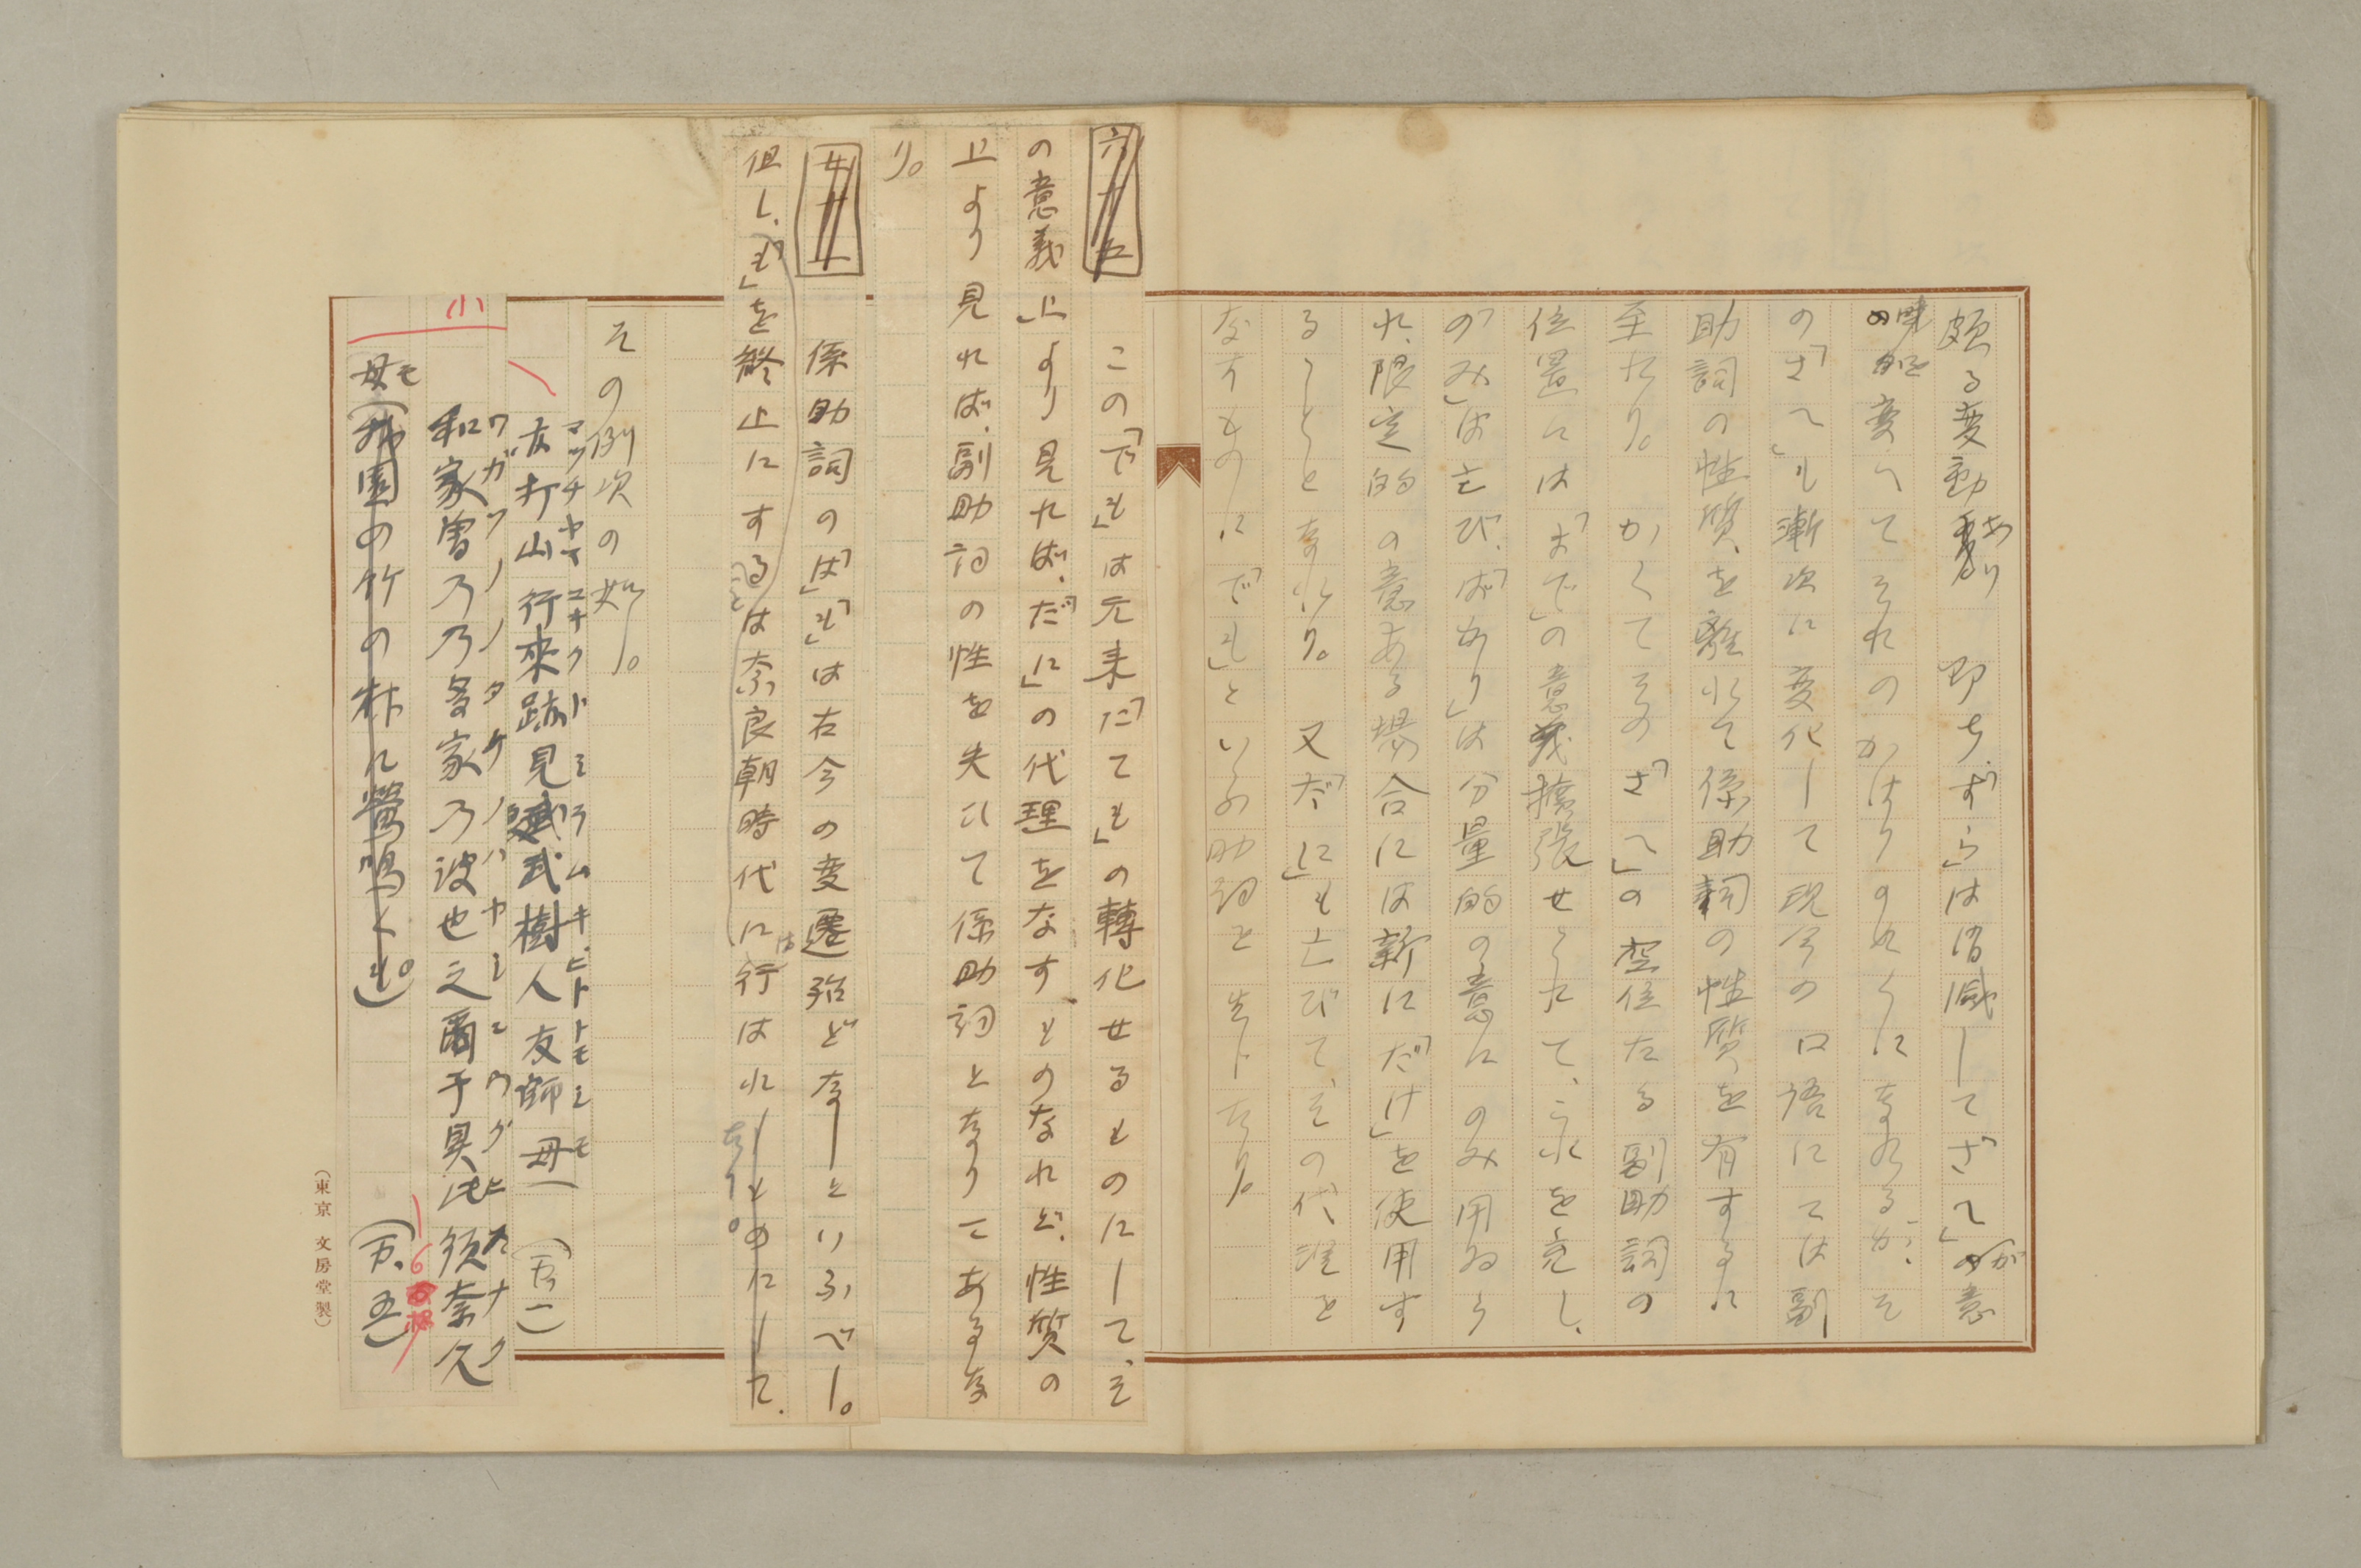 頗る変動あり　即ち「すら」は消滅して「さへ」が意
の時変へてそれのかはりの如くになれるが、そ
の「さへ」も漸次に変化して現今の口語にては副
助詞の性質を離れて係助詞の性質を有するに
至れり。かくてその「さへ」の空位たる副助詞の
位置には「まで」の意義擴張せられて、これを充し、
「のみ」は亡び、「ばかり」は分量的の意にのみ用ゐら
れ、限定的の意ある場合には新に「だけ」を使用す
ることとなれり。又「だに」も亡びて、その代理を
なすものに「でも」といふ助詞を生じたり。
この「でも」は元来「にても」の轉化せるものにして、そ
の意義上より見れば、「だに」の代理をなすものなれど、性質の
上より見れば、副助詞の性を失ひて係助詞となりてあるな
り。
係助詞の「は」「も」は古今の変遷殆どなしといふべし。
但し、「も」を終止にするは奈良朝時代に行はれしものにした。
その例次の如し。
友打山行来跡見武樹人友師母（万一）
マツチヤマユキクトミラムキヒトトモシモ
和家曽乃乃多家乃波也之爾于具比須奈久
ワガソノノタケノハヤシニウグヒスナク
母（我園の竹の林に鶯鳴くも）（万、五）
モ
小
16
（東京　文房堂製）